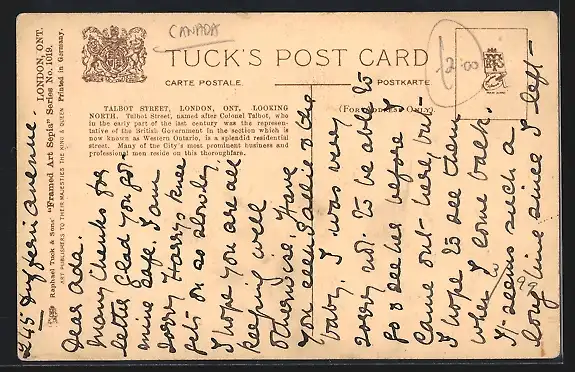 CANADA
TUCK'S POST CARD
CARTE POSTALE.
POSTKARTE.
(For Address Only)
£2.00
RAPHAEL TUCK
TALBOT STREET, LONDON, ONT. LOOKING
NORTH. Talbot Street, named after Colonel Talbot, who
in the early part of the last century was the represen-
tative of the British Government in the section which is
now known as Western Ontario, is a splendid residential
street. Many of the City's most prominent business and
professional men reside on this thoroughfare.
Raphael Tuck & Sons' "Framed Art Sepia" Series No. 1019. LONDON, ONT.
ART PUBLISHERS TO THEIR MAJESTIES THE KING & QUEEN Printed in Germany.
245 Dufferin avenue.
Dear Ada.
Many thanks for
letter glad you got
mine safe. I am
sorry Harrys knee
gets on so slowly,
I hope you are all
keeping well
otherwise. Have
you seen Sallie & the
baby. I was very
sorry not to be able to
go & see her before I
came out here, but
I hope to see them
when I come back
It seems such a
long time since I left-
99